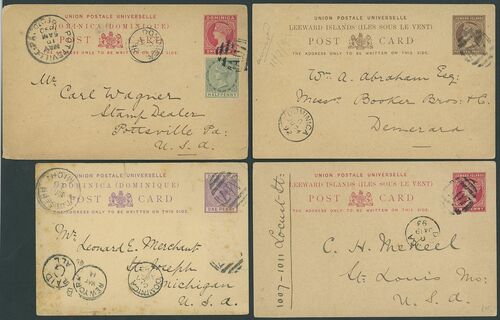 UNION POSTALE UNIVERSELLE
DOMINICA (DOMINIQUE)
POST CARD
THE ADDRESS ONLY TO BE WRITTEN ON THIS SIDE.
DOMINICA
HALFPENNY
Mr.
Carl Wagner
Stamp Dealer
Pottsville Pa:
U. S. A.
UNION POSTALE UNIVERSELLE
LEEWARD ISLANDS (ILES SOUS LE VENT)
POST CARD
THE ADDRESS ONLY TO BE WRITTEN ON THIS SIDE.
Wm. A. Abraham Esq:
Messrs Booker Bros: & Co
Demerara
DOMINICA
UNION POSTALE UNIVERSELLE
DOMINICA (DOMINIQUE)
POST CARD
THE ADDRESS ONLY TO BE WRITTEN ON THIS SIDE.
ONE PENNY
Mr.
Leonard E. Merchant
St. Joseph
Michigan
U. S. A.
PAID
ALL
NEW YORK
DOMINICA
UNION POSTALE UNIVERSELLE
LEEWARD ISLANDS (ILES SOUS LE VENT)
POST CARD
THE ADDRESS ONLY TO BE WRITTEN ON THIS SIDE.
1007-1011 Locust St:
C. H. Mekeel
St. Louis Mo:
U. S. A.